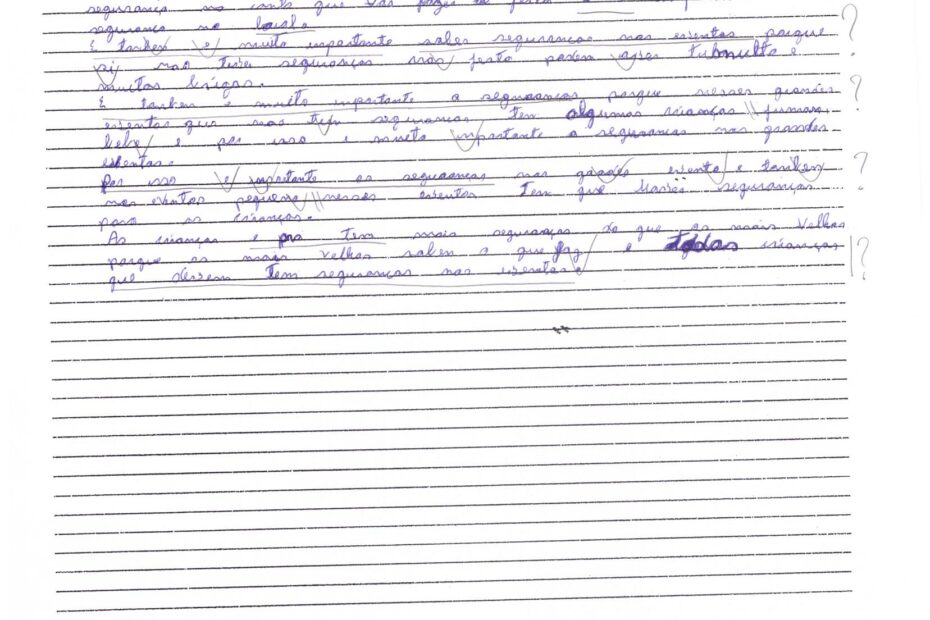 segurança no canto que vai fazer a festa
segurança no local.
E tanbem e muito inportante saber seguranças nos esentos porque
si nao tever seguranças não festa podem aver tubmulto e
muitas brigas.
E tanben e muito inportante a seguranças porque nesses grandes
esentos que nao tem seguranças tem algumas crianças fumam
bebe e por isso e mueto inportante a seguranças nos grandes
esentos.
Por isso e inportante as seguranças nos grandes evento e tanben
nos eventos pequeno nesses esentos tem que seguranças
para as crianças.
As crianças e pra tem mais seguranças do que os mais velhos
porque os mais velhos saben o que faz e todas crianças
que devem tem seguranças nos esentos
? ? ? ?